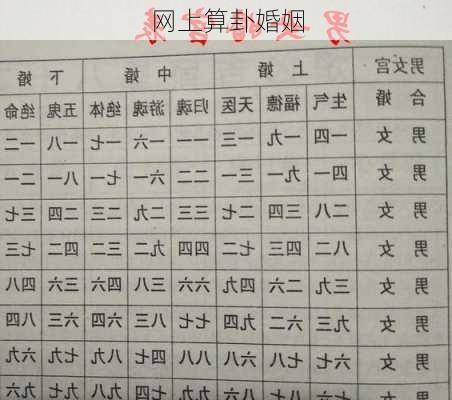 网上算卦婚姻
男女宫 上 婚 中 婚 下 婚
合 婚 生气 福德 天医 归魂 游魂 绝体 五鬼 绝命
男 女 一四 一九 一三 一一 一六 一七 一八 一二
男 女 四一 九一 三一 二二 六一 七一 八一 二一
男 女 二八 三四 二七 三三 二九 二三 二四 三七
男 女 八二 四三 七二 四四 九二 三二 四二 七三
男 女 三九 二六 四九 六六 三八 四六 三六 四八
男 女 九三 六二 九四 七七 八三 六四 六三 八四
男 女 六七 七八 六八 八八 四七 八九 七九 六九
男 女 七六 八七 八六 九九 七四 九八 九七 九六